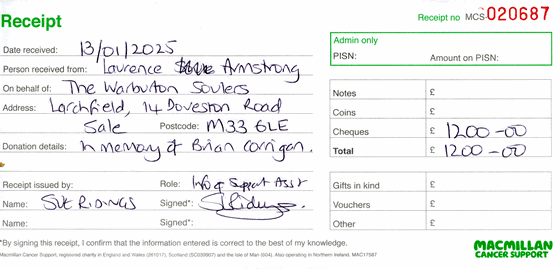 Receipt
Receipt no MCS-020687
Date received: 13/01/2025
Person received from: Laurence Armstrong
On behalf of: The Warburton Soulers
Address: Larchfield, 14 Doveston Road
Sale Postcode: M33 6LE
Donation details: In memory of Brian Corrigan.
Admin only
PISN: Amount on PISN:
Notes £
Coins £
Cheques £ 1200-00
Total £ 1200-00
Receipt issued by: Role: Info & Support Asst
Name: SUE RIDINGS Signed*: SRidings
Name: Signed*:
Gifts in kind £
Vouchers £
Other £
*By signing this receipt, I confirm that the information entered is correct to the best of my knowledge.
Macmillan Cancer Support, registered charity in England and Wales (261017), Scotland (SC039907) and the Isle of Man (604). Also operating in Northern Ireland. MAC17587
MACMILLAN
CANCER SUPPORT